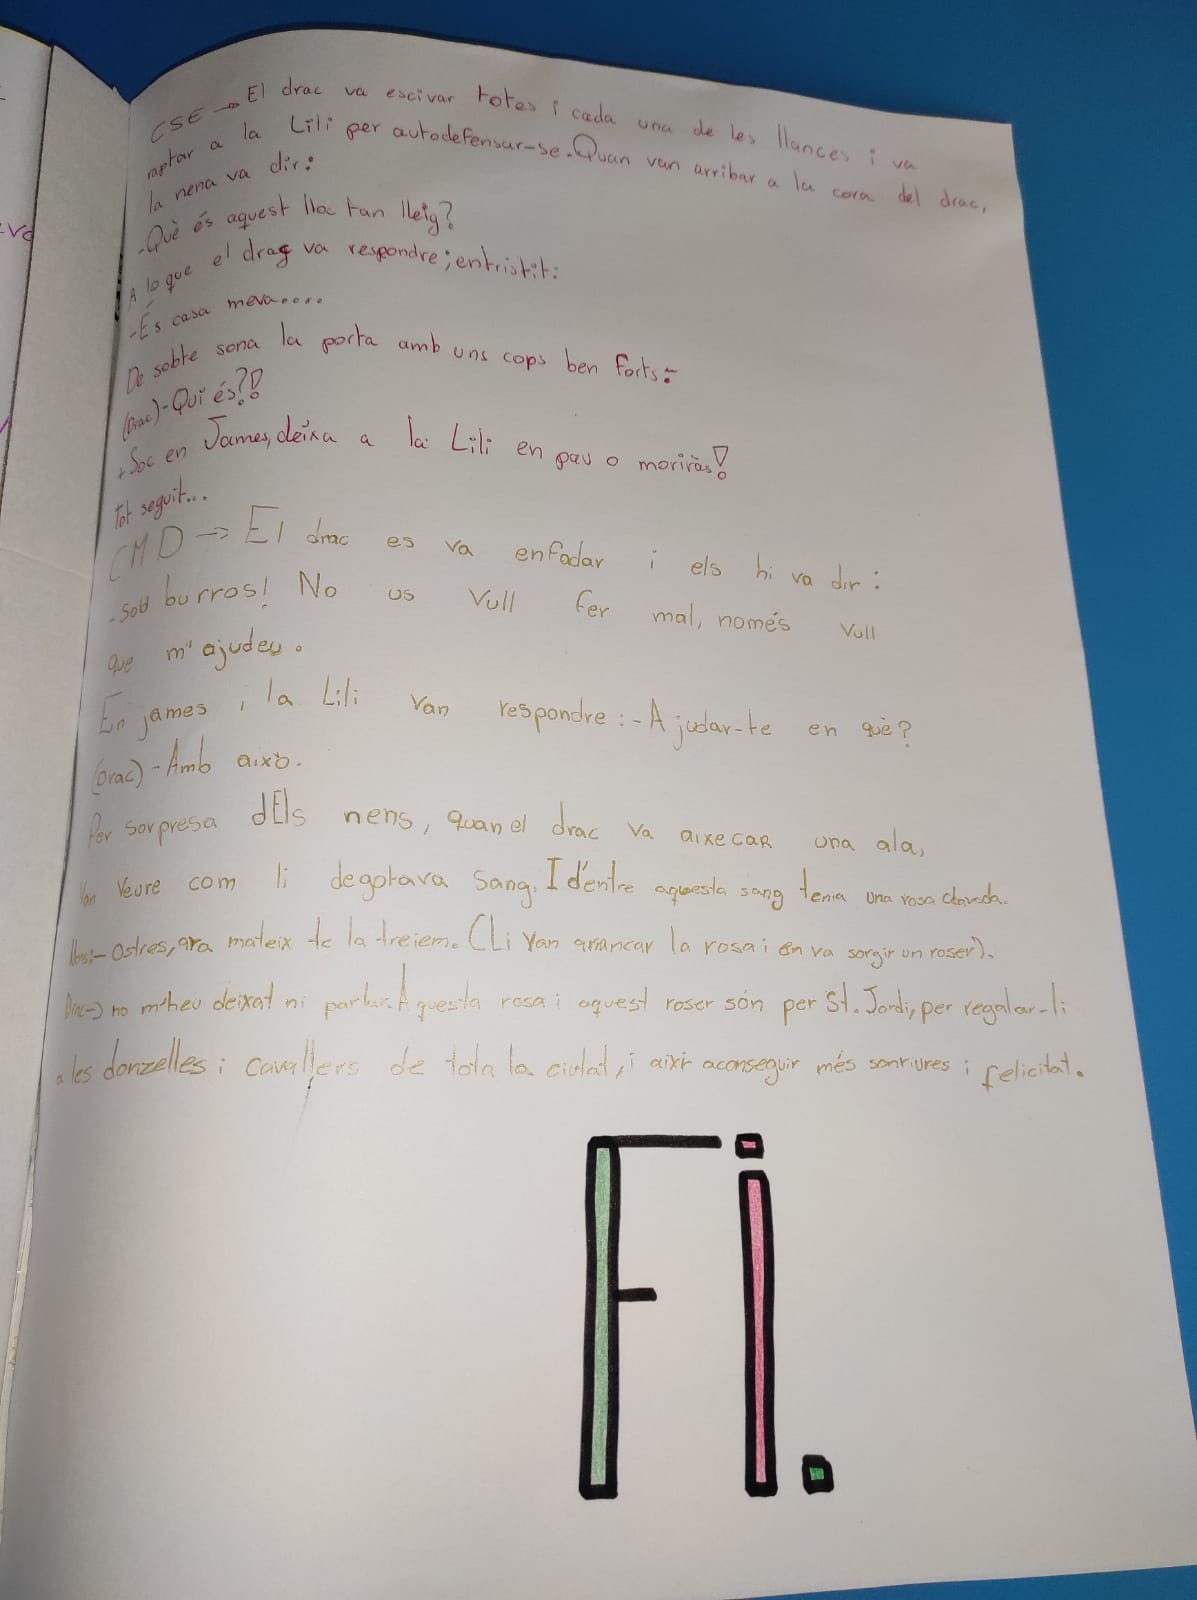 CSE → El drac va escivar totes i cada una de les llances i va
raptar a la Lili per autodefensar-se. Quan van arribar a la cova del drac,
la nena va dir:
-Què és aquest lloc tan lleig?
A lo que el drac va respondre; entristit:
-És casa meva....
De sobte sona la porta amb uns cops ben forts:
(Drac)-Qui és?!
+Soc en James, deixa a la Lili en pau o moriràs!
Tot seguit...
CMD → El drac es va enfadar i els hi va dir:
-Sou burros! No us vull fer mal, només vull
que m'ajudeu.
En james i la Lili van respondre:-Ajudar-te en què?
(Drac)-Amb això.
Per sorpresa dEls nens, quan el drac va aixecar una ala,
van veure com li degotava sang. I d'entre aquesta sang tenia una rosa clavada.
-Ostres, ara mateix te la treiem. (Li van arrancar la rosa i en va sorgir un roser).
Drac-) no m'heu deixat ni parlar. Aquesta rosa i aquest roser són per St. Jordi, per regalar-li
a les donzelles i cavallers de tota la ciutat, i així aconseguir més somriures i felicitat.
Fi.